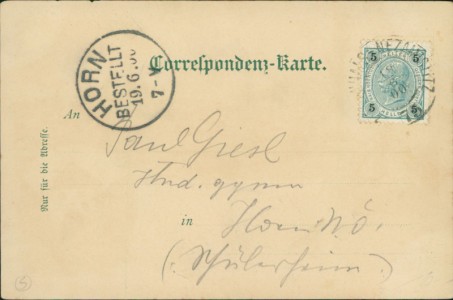 HORN
BESTELLT
19.6.00
7-V
Correspondenz-Karte.
5 5
5 5
An
Paul Giesl
stud. gymn
in
Horn N.Ö.
(Schülerheim)
Nur für die Adresse.